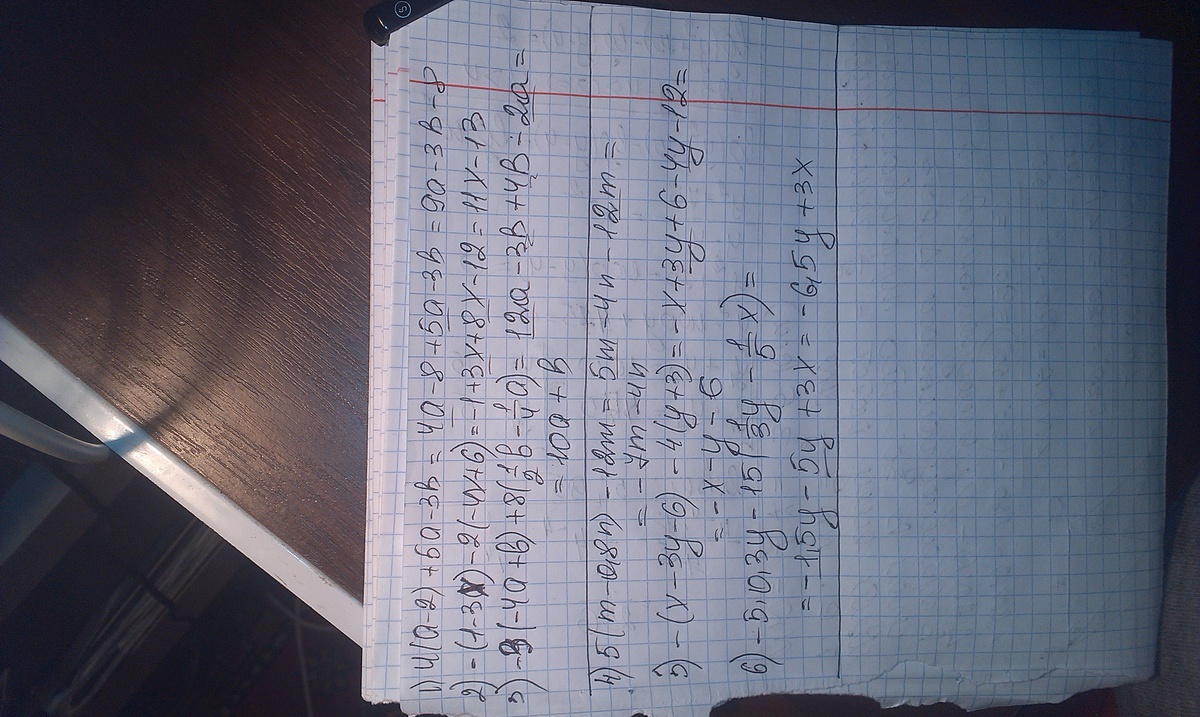 1) 4(a-2)+5a-3b = 4a-8+5a-3b = 9a-3b-8
2) -(1-3x)-2(-4x+6) = -1+3x+8x-12 = 11x-13
3) -3(-4a+b)+8(1/2b-1/4a) = 12a-3b+4b-2a =
= 10a+b
4) 5(m-0,8n)-12m = 5m-4n-12m =
= -7m-4n
5) -(x-3y-6)-4(y+3) = -x+3y+6-4y-12 =
= -x-y-6
6) -5·0,3y-15(1/3y-1/5x) =
= -1,5y-5y+3x = -6,5y+3x
5